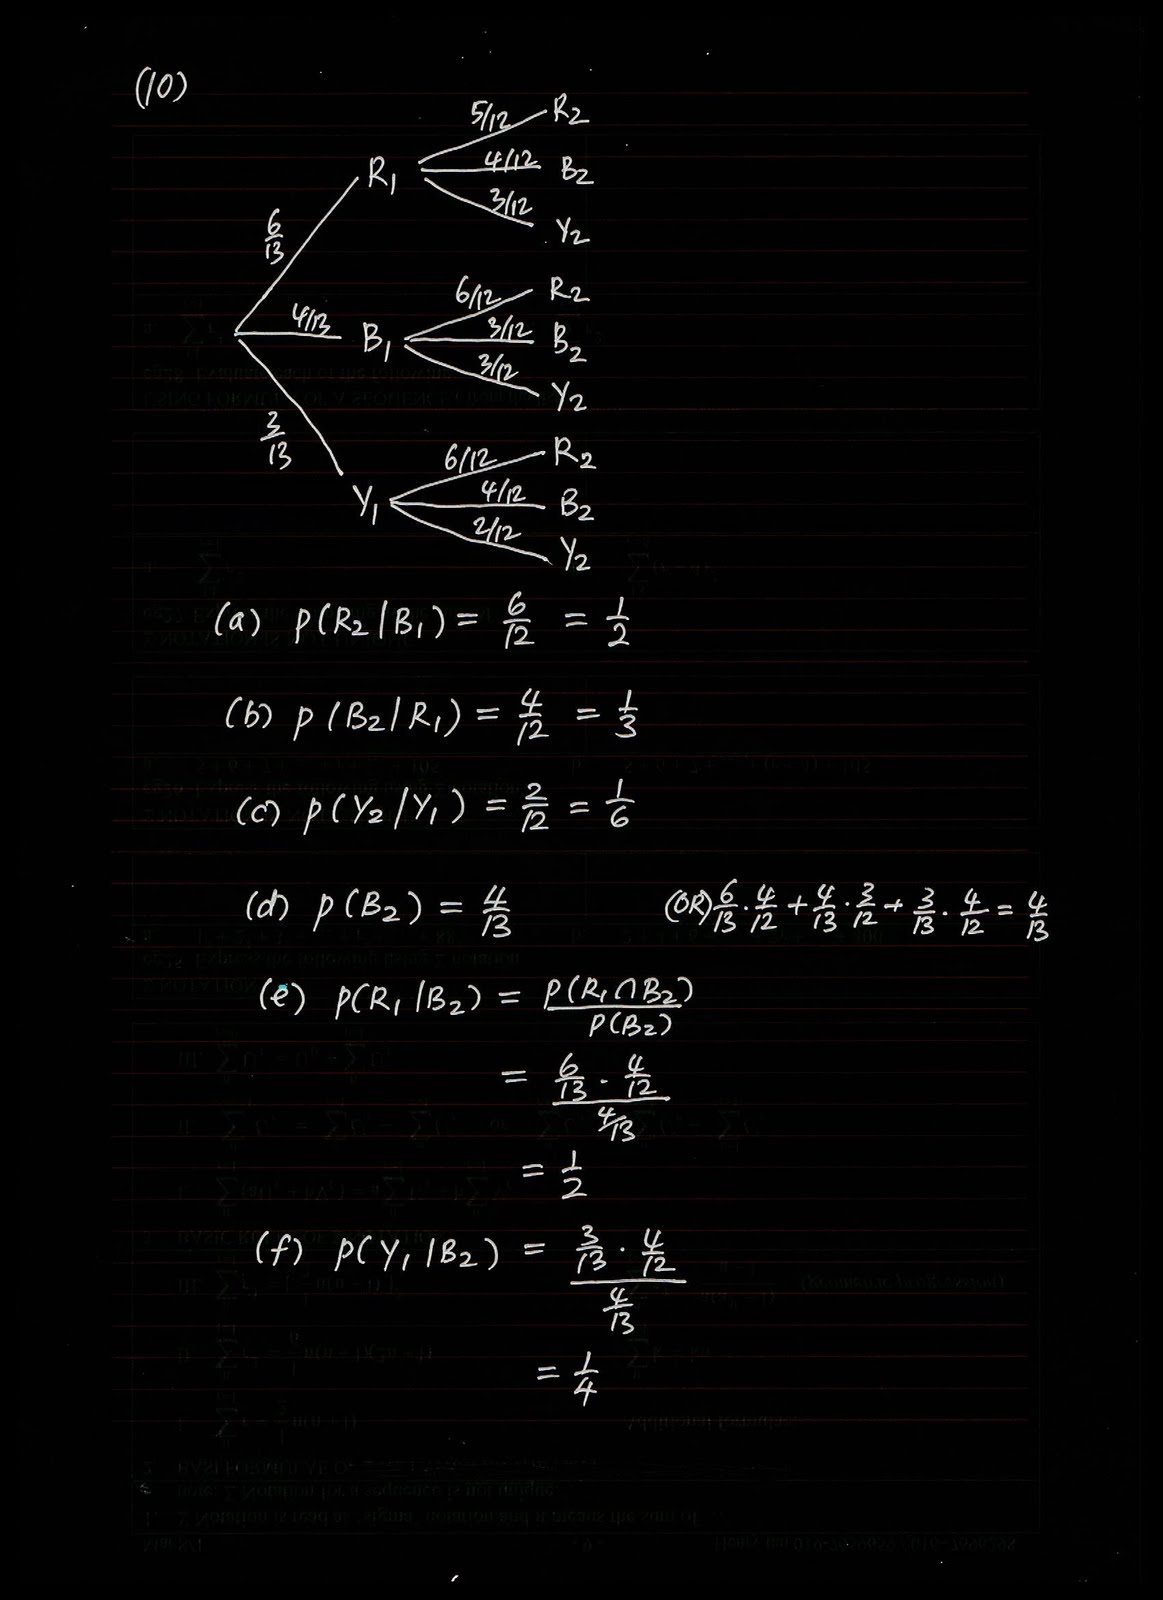 (10)
5/12 R2
R1 4/12 B2
3/12 Y2
6/13
6/12 R2
4/13 B1 3/12 B2
3/12 Y2
3/13
6/12 R2
Y1 4/12 B2
2/12 Y2
(a) P(R2/B1) = 6/12 = 1/2
(b) P(B2/R1) = 4/12 = 1/3
(c) P(Y2/Y1) = 2/12 = 1/6
(d) P(B2) = 4/13 (OR) 6/13 · 4/12 + 4/13 · 3/12 + 3/13 · 4/12 = 4/13
(e) P(R1/B2) = P(R1∩B2)
P(B2)
= 6/13 · 4/12
4/13
= 1/2
(f) P(Y1/B2) = 3/13 · 4/12
4/13
= 1/4